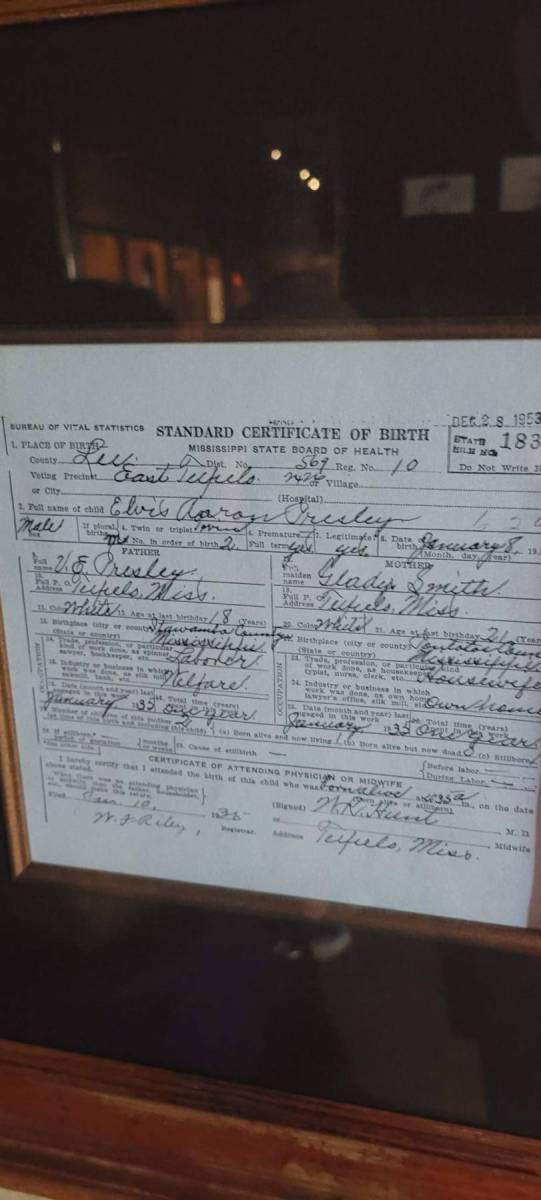 DEC 28 1953
BUREAU OF VITAL STATISTICS STANDARD CERTIFICATE OF BIRTH
STATE FILE NO. 183
1. PLACE OF BIRTH MISSISSIPPI STATE BOARD OF HEALTH
County Lee Dist. No. 569 Reg. No. 10 Do Not Write H
Voting Precinct East Tupelo or Village
or City (Hospital)
2. Full name of child Elvis Aaron Presley
Male Sex If plural births 4. Twin or triplet twin 6. Premature 7. Legitimate? 8. Date birth January 8, 19
No. in order of birth 2 Full term yes yes (Month, day, year)
FATHER MOTHER
Full name V. E. Presley Full maiden name Gladys Smith
10. Full P. O. Address Tupelo, Miss. Full P. O. Address Tupelo, Miss.
11. Color White 12. Age at last birthday 18 (Years) 20. Color White 21. Age at last birthday 21 (Years)
13. Birthplace (city or county) Itawamba County Birthplace (city or county) Pontotoc Coun
(State or country) Mississippi (State or country) Mississippi
OCCUPATION 14. Trade, profession, or particular kind of work done, as spinner, sawyer, bookkeeper, etc. Laborer OCCUPATION 23. Trade, profession, or particular kind of work done, as housekeeper, typist, nurse, clerk, etc. Housewife
15. Industry or business in which work was done, as silk mill, sawmill, bank, etc. Welfare 24. Industry or business in which work was done, as own home, lawyer's office, silk mill, etc. Own home
16. Date (month and year) last engaged in this work January 1935 17. Total time (years) spent in this work one year
25. Date (month and year) last engaged in this work January 1935 26. Total time (years) spent in this work one year
Number of children of this mother (At time of this birth and including this child) 2 (a) Born alive and now living 1 (b) Born alive but now dead (c) Stillborn 1
If stillborn, period of gestation months or weeks 29. Cause of stillbirth Before labor During Labor
CERTIFICATE OF ATTENDING PHYSICIAN OR MIDWIFE
I hereby certify that I attended the birth of this child who was born alive at m., on the date
above stated. (Born alive or stillborn)
When there was no attending physician or midwife, then the father, householder, etc., should make this return.
(Signed) W. R. Hunt M. D.
Filed Jan. 10, 1935 or Midwife
W. F. Riley, Registrar. Address Tupelo, Miss.